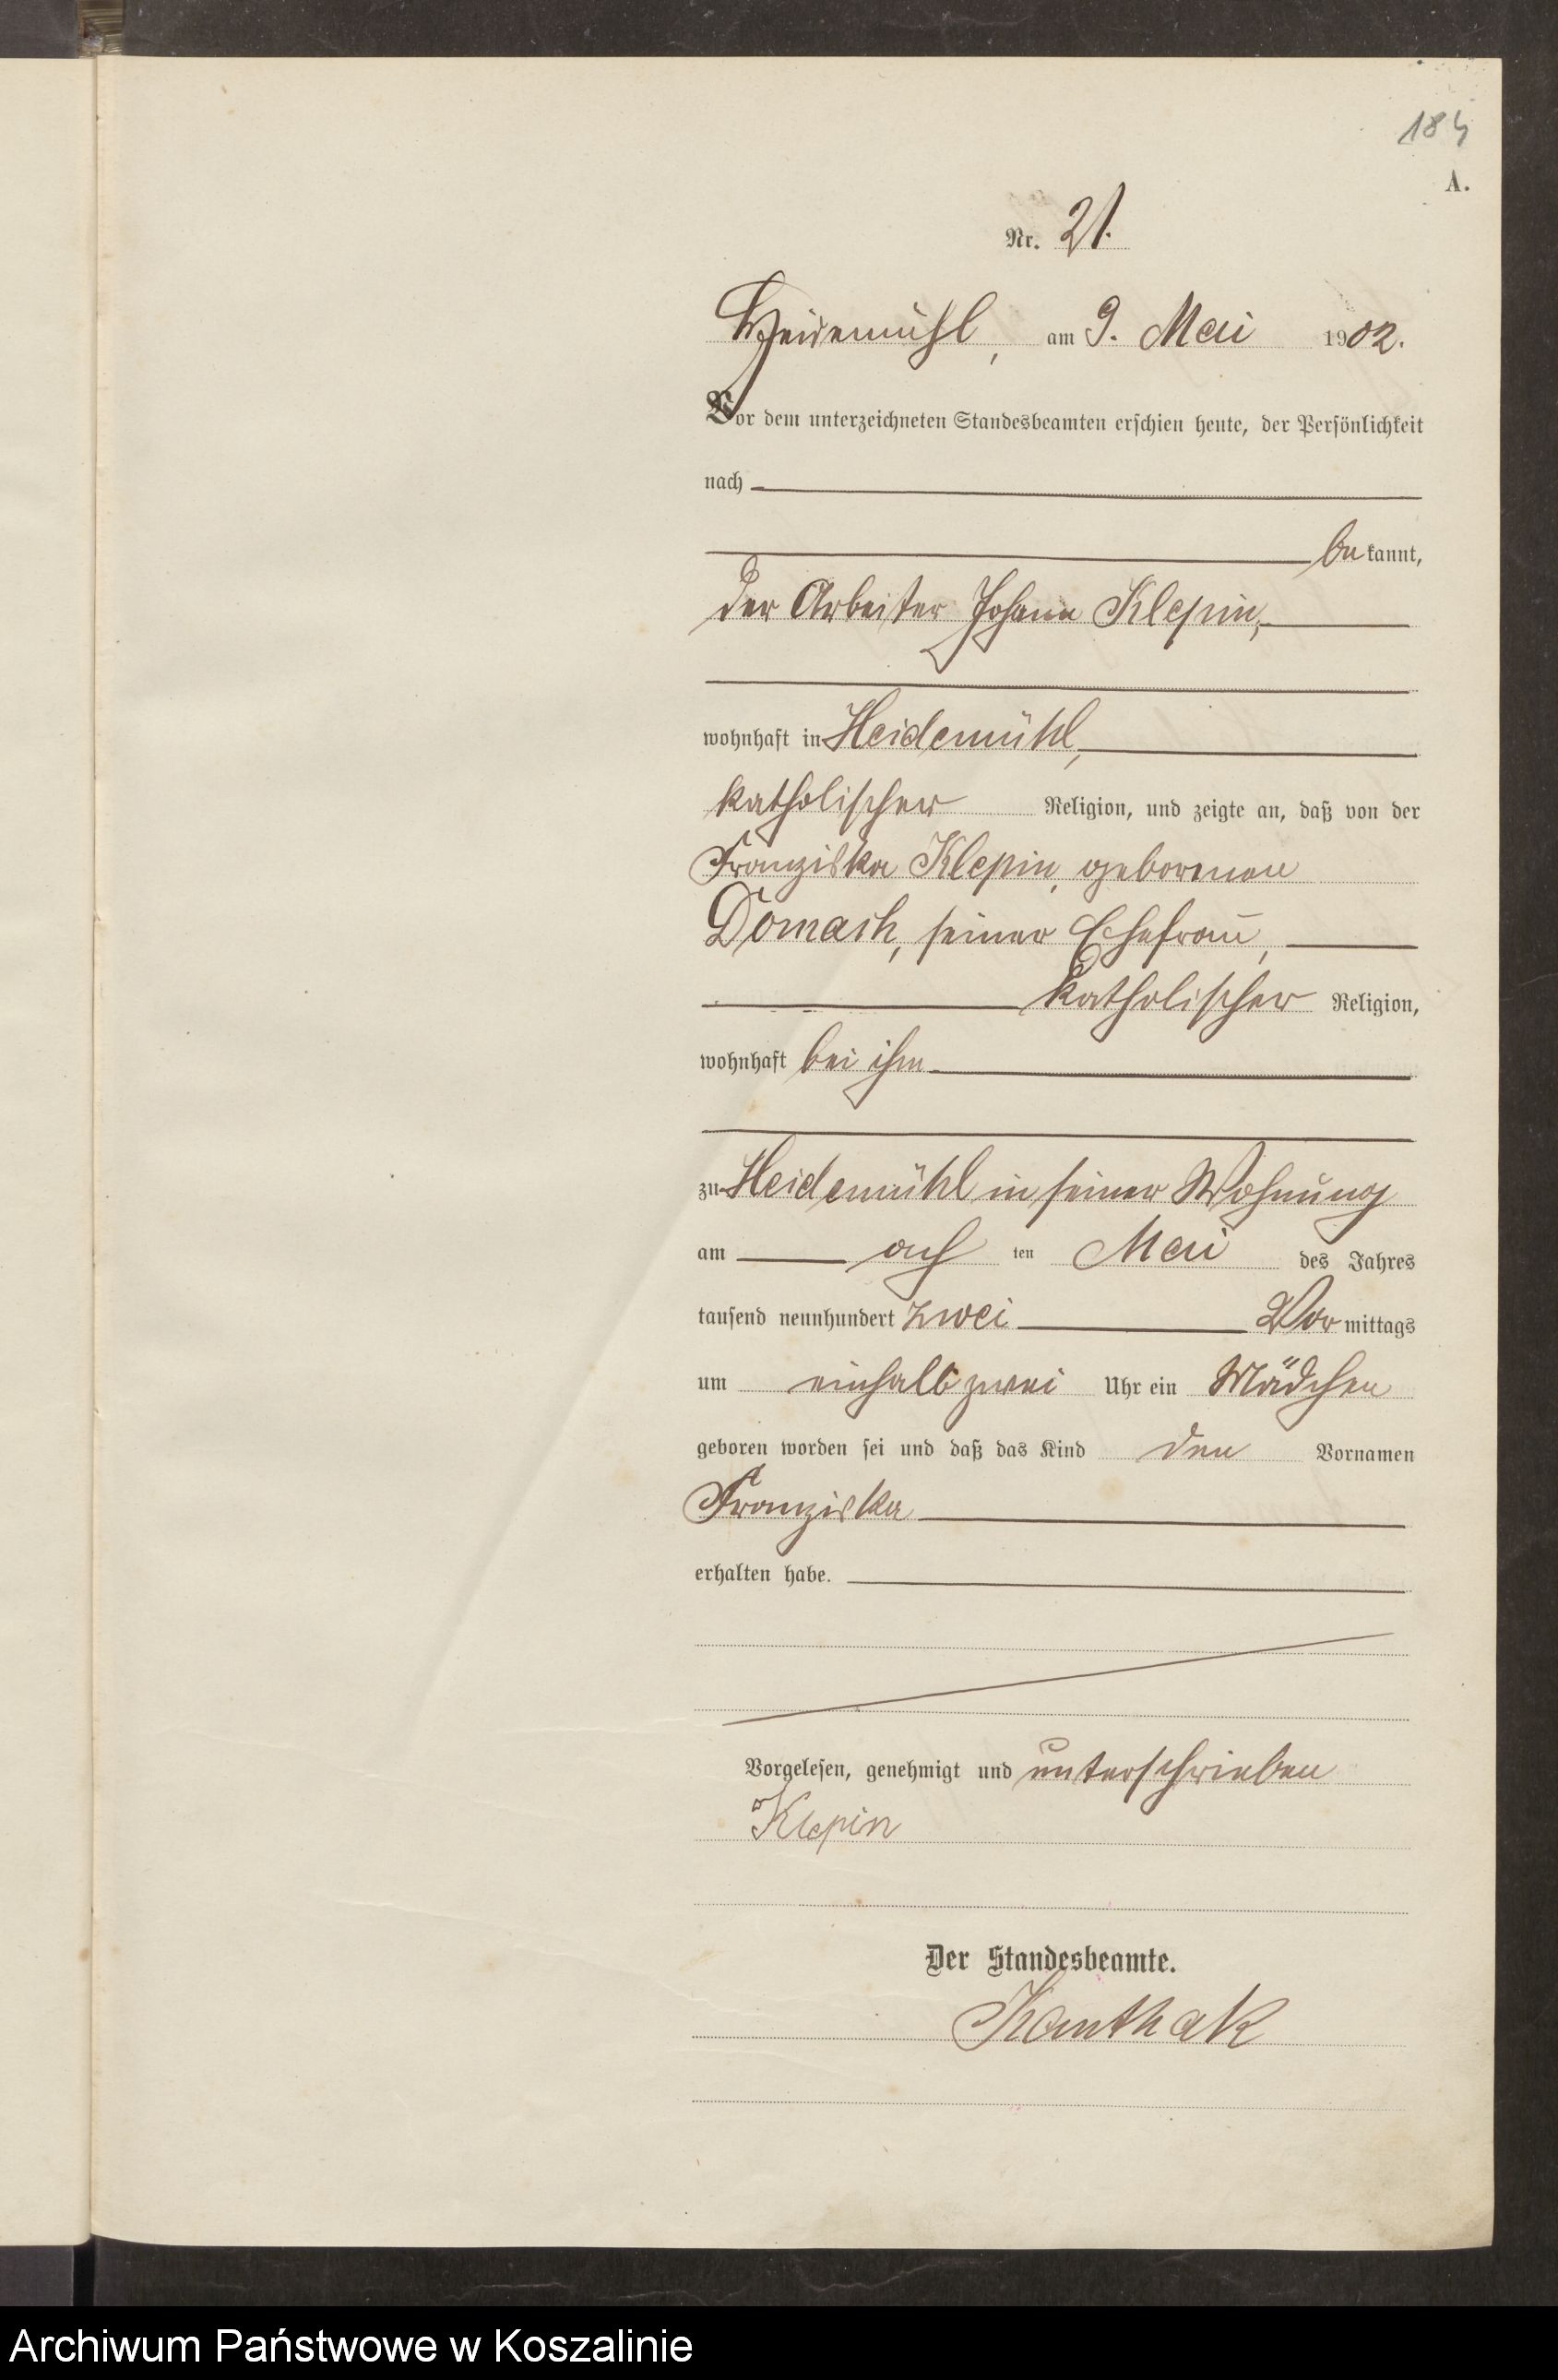 184
A.
Nr. 21.
Heidemühl, am 9. Mai 1902.
Vor dem unterzeichneten Standesbeamten erschien heute, der Persönlichkeit
nach
be kannt,
der Arbeiter Johann Klepin,
wohnhaft in Heidemühl,
katholischer Religion, und zeigte an, daß von der
Franziska Klepin, geborenen
Domach, seiner Ehefrau,
katholischer Religion,
wohnhaft bei ihm
zu Heidemühl in seiner Wohnung
am ach ten Mai des Jahres
tausend neunhundert zwei Vor mittags
um einhalb zwei Uhr ein Mädchen
geboren worden sei und daß das Kind den Vornamen
Franziska
erhalten habe.
Vorgelesen, genehmigt und unterschrieben
Klepin
Der Standesbeamte.
Kanthak
Archiwum Państwowe w Koszalinie